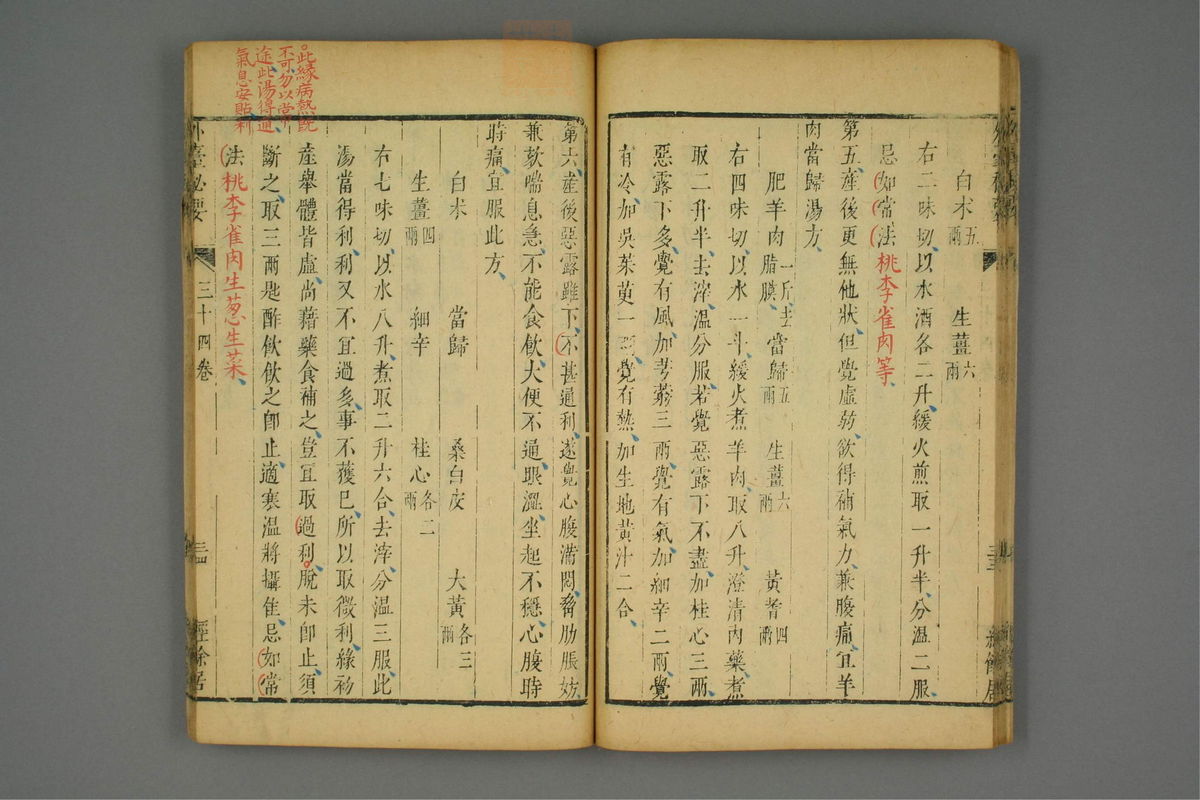 白朮五兩 生薑六兩
右二味切以水酒各二升緩火煎取一升半分溫二服
忌如常法桃李雀肉等
第五產後更無他狀但覺虛弱欲得補氣力兼腹痛宜羊
肉當歸湯方
肥羊肉一斤去脂膜 當歸五兩 生薑六兩 黃耆四兩
右四味切以水一斗緩火煮羊肉取八升澄清內藥煮
取二升半去滓溫分服若覺惡露下不盡加桂心三兩
惡露下多覺有風加芎藭三兩覺有氣加細辛二兩覺
有冷加吳茱萸一兩覺有熱加生地黃汁二合
第六產後惡露雖下不甚通利遂覺心腹滿悶脅肋脹妨
兼欬喘息急不能食飲大便不通眼澀坐起不穩心腹時
時痛宜服此方
白朮 當歸 桑白皮 大黃各三兩
生薑四兩 細辛 桂心各二兩
右七味切以水八升煮取二升六合去滓分溫三服此
湯當得利利又不宜過多事不獲已所以取微利緣初
產舉體皆虛尚藉藥食補之豈宜取過利脫未即止須
斷之取三兩匙酢飲飲之即止適寒溫將攝佳忌如常
法桃李雀肉生葱生菜
外臺秘要 三十四卷 三四 經餘居
此緣病熱既
不可勿以常
途此湯得通
氣息安貼利